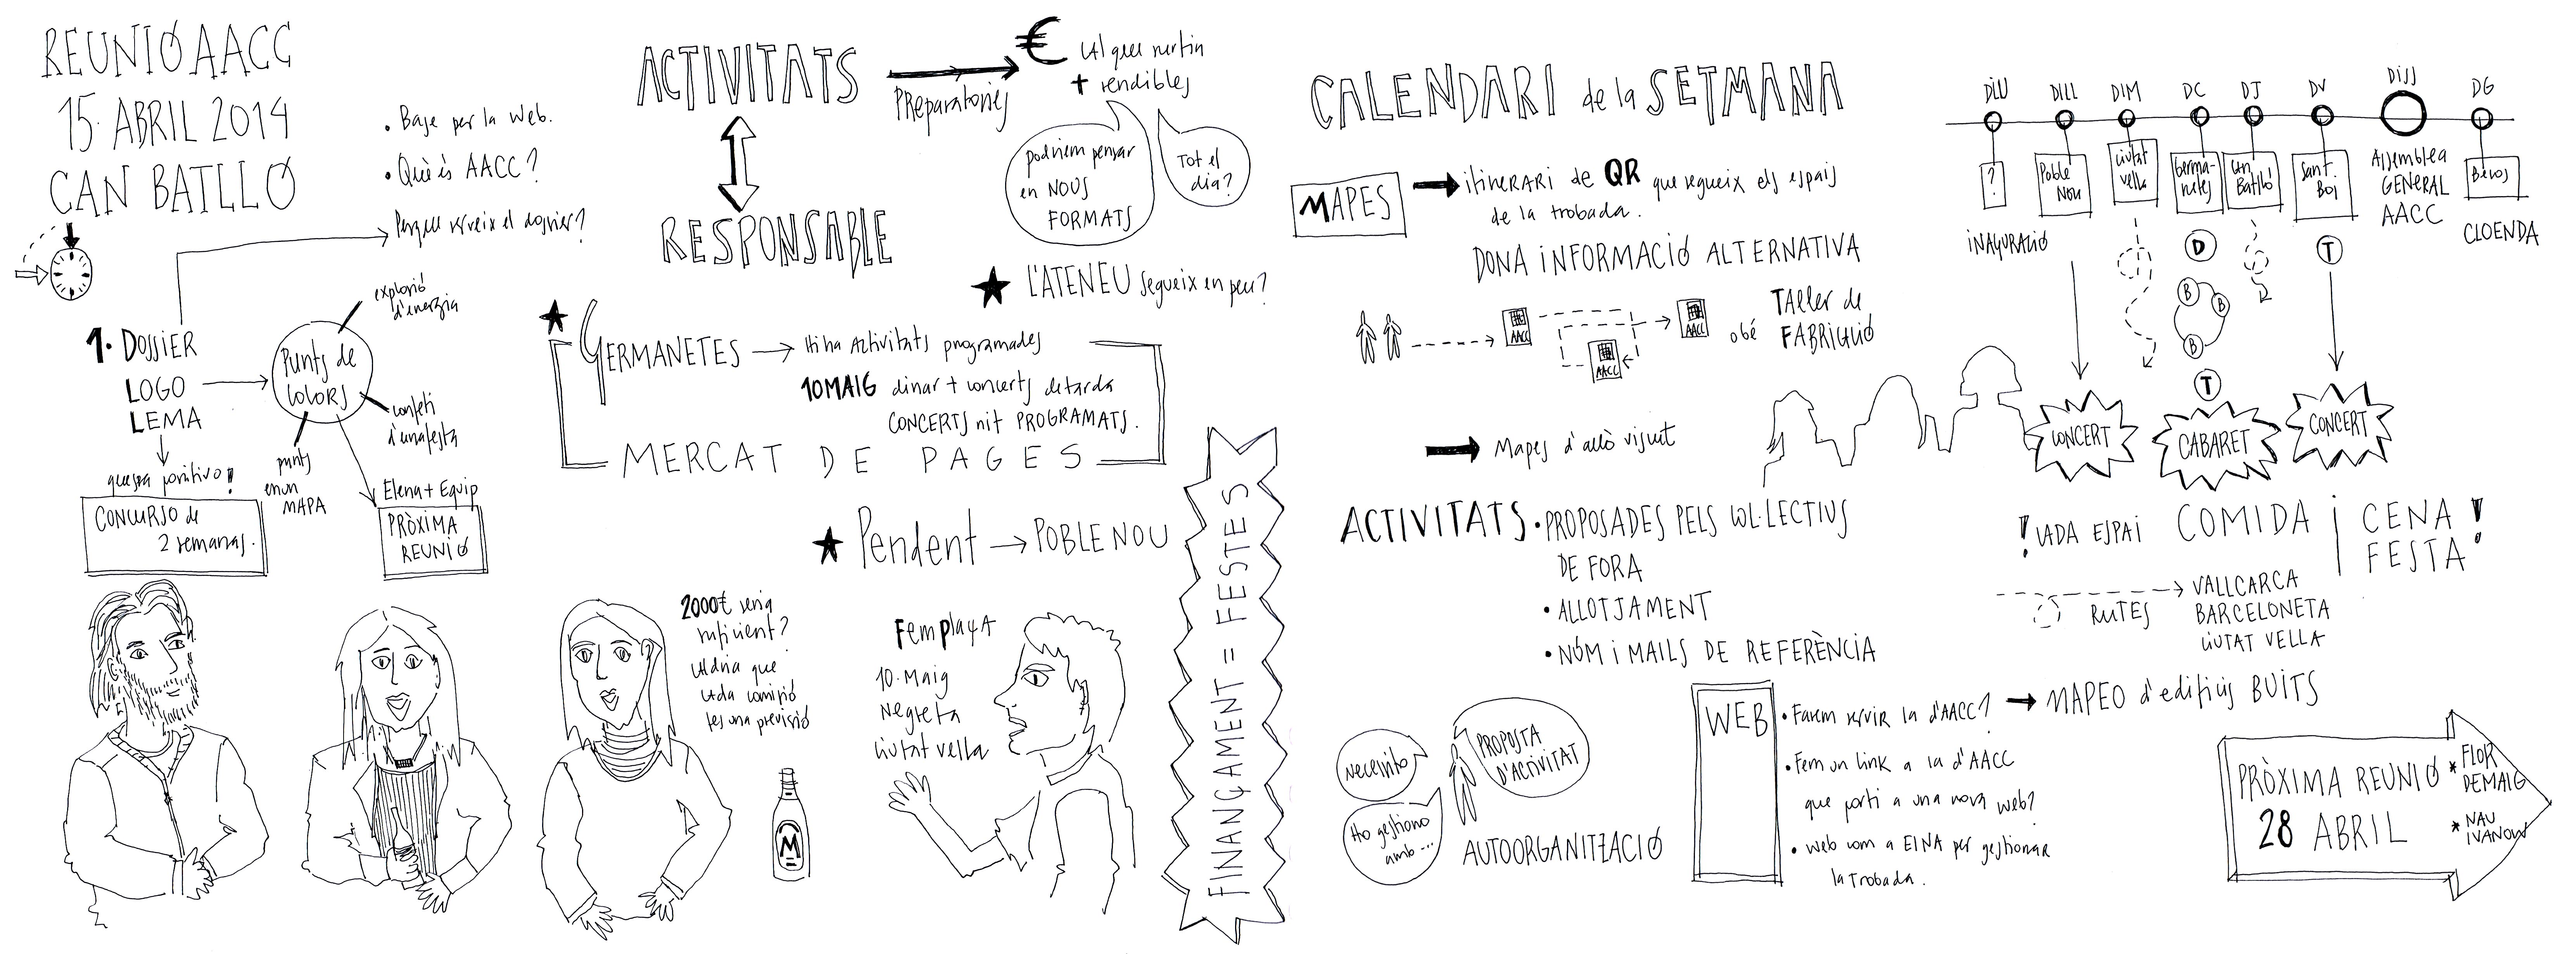 REUNIÓ AACC
15 · ABRIL 2014
CAN BATLLÓ
• Base per la web.
• Què és AACC?
Perque serveix el dossier?
1. DOSSIER
LOGO
LEMA
que sea positivo!
CONCURSO de
2 semanas.
Punts de
colors
explosió
d'energia
confeti
d'una festa
punts
en un
MAPA
Elena + Equip
PRÒXIMA
REUNIÓ
ACTIVITATS
RESPONSABLE
Preparatories
€ Cal que surtin
+ rendibles
podriem pensar
en NOUS
FORMATS
Tot el
dia?
★ L'ATENEU segueix en peu?
★ GERMANETES → Hi ha Activitats programades
10 MAIG dinar + concerts de tarda
CONCERTS nit PROGRAMATS.
MERCAT DE PAGES
★ Pendent → POBLE NOU
2000€ seria
suficient?
Caldria que
cada comissió
fes una previsió
M
Fem plaçA
10. Maig
Negreta
Ciutat vella
FINANÇAMENT = FESTES
CALENDARI de la SETMANA
MAPES → itinERARI de QR que segueix els espais
de la trobada.
DONA iNFORMACIÓ ALTERNATIVA
AACC
AACC
AACC
o bé
TAller de
FABRICACIÓ
→ Mapes d'allò viscut
ACTIVITATS • PROPOSADES PELS COL·LECTIUS
DE FORA
• ALLOTJAMENT
• NOM i MAILS DE REFERÈNCIA
Necessito
PROPOSTA
D'ACTIVITAT
Ho gestiono
amb...
AUTOORGANITZACIÓ
WEB
• Farem servir la d'AACC? → MAPEO d'edificis BUITS
• Fem un link a la d'AACC
que porti a una nova web?
• Web com a EINA per gestionar
la trobada.
DiU DILL DIM DC DJ DV DiSS DG
?
Poble
Nou
Ciutat
vella
Germa-
netes
Can
Batlló
Sant.
Boi
Assemblea
GENERAL
AACC
Besos
iNAGURACIÓ
CLOENDA
D
T
B
B
B
T
CONCERT
CABARET
CONCERT
! CADA ESPAi COMIDA i CENA !
FESTA!
RUTES
VALLCARCA
BARCELONETA
CiUTAT VELLA
PRÒXIMA REUNIÓ
28 ABRIL
* FLOR
DE MAIG
* NAU
IVANOW